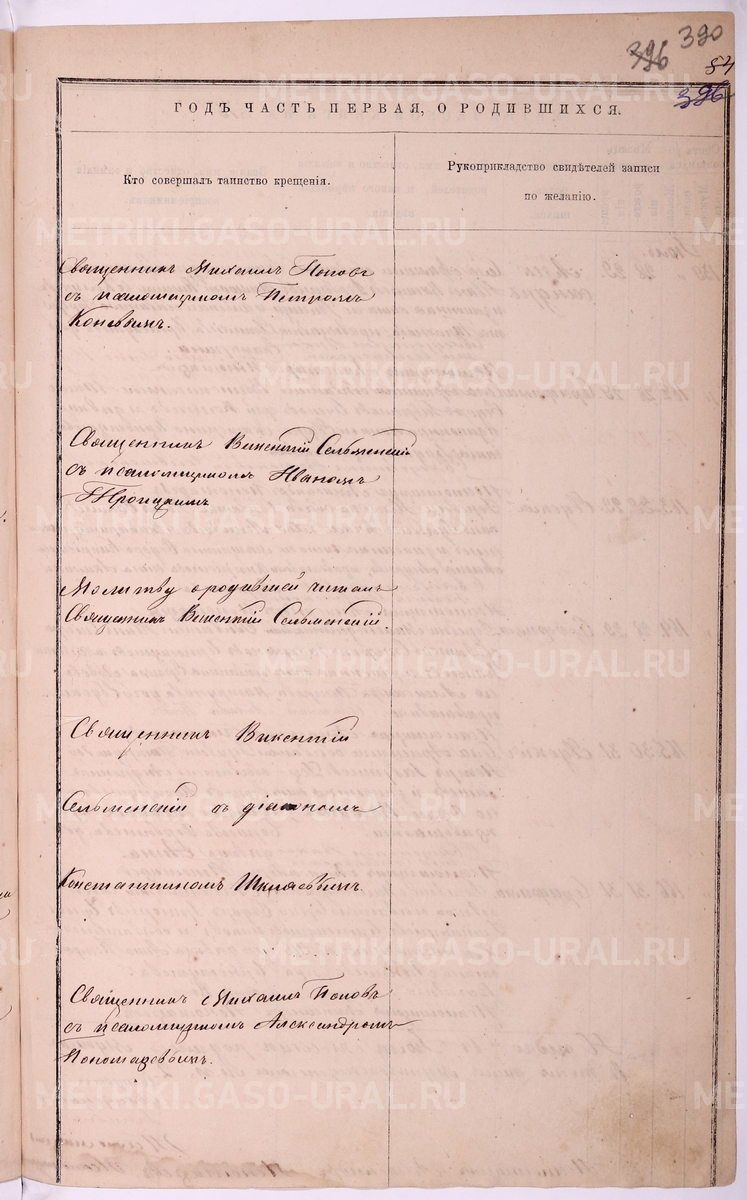 396 390
84
396
ГОДЪ ЧАСТЬ ПЕРВАЯ, О РОДИВШИХСЯ.
Кто совершалъ таинство крещенія.
Рукоприкладство свидѣтелей записи
по желанію.
Священникъ Михаилъ Поповъ
съ псаломщикомъ Петромъ
Коневымъ.
Священникъ Викентій Сельменскій
съ псаломщикомъ Иваномъ
Троицкимъ
Молитву о родившей читалъ
Священникъ Викентій Сельменскій.
Священникъ Викентій
Сельменскій съ діакономъ
Константиномъ
Священникъ Михаилъ Поповъ
съ псаломщикомъ Александромъ
Пономаревымъ.
METRIKI.GASO-URAL.RU